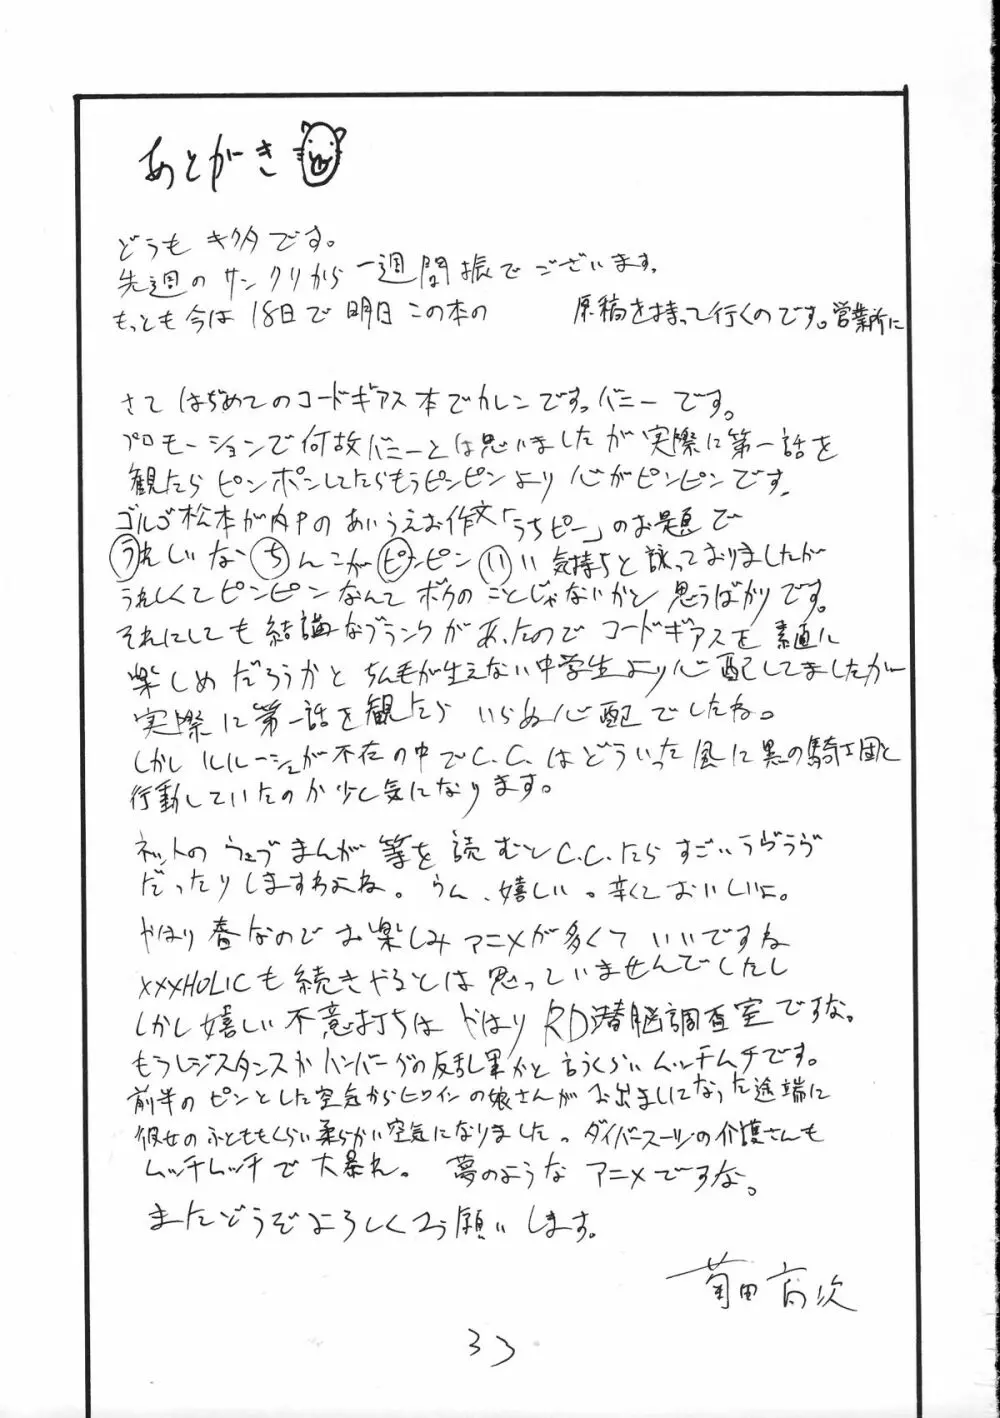 あとがき
どうもキクタです。
先週のサンクリから一週間振でございます。
もっとも今は18日で明日この本の 原稿を持って行くのです。営業所に
さてはじめてのコードギアス本でカレンですっバニーです。
プロモーションで何故バニーとは思いましたが実際に第一話を
観たらピンポンしてたらもうピンピンより心がピンピンです。
ゴルゴ松本が内Pのあいうえお作文「うちピー」のお題で
うれしいな ちんこが ピンピン いい気持ちと詠っておりましたが
うれしくてピンピンなんてボクのことじゃないかと思うばかりです。
それにしても結講なブランクがあったのでコードギアスを素直に
楽しめだろうかとちん毛が生えない中学生より心配してましたが
実際に第一話を観たらいらぬ心配でしたね。
しかしルルーシュが不在の中でC.C.はどういった風に黒の騎士団と
行動していたのか少し気になります。
ネットのウェブまんが等を読むとC.C.たらすごいラヴラヴ
だったりしますわよね。うん、嬉しい。辛くておいしいよ。
やはり春なのでお楽しみアニメが多くていいですね
XXXHOLICも続きやるとは思っていませんでしたし
しかし嬉しい不意打ちはやはりRD潜脳調査室ですな。
もうレジスタンスかハンバーグの反乱軍かと言うくらいムッチムチです。
前半のピンとした空気からヒロインの娘さんがお出ましになった途端に
彼女のふとももくらい柔らかい空気になりました。ダイバースーツの介護さんも
ムッチムッチで大暴れ。 夢のようなアニメですな。
またどうぞよろしくお願いします。
菊田高次
33